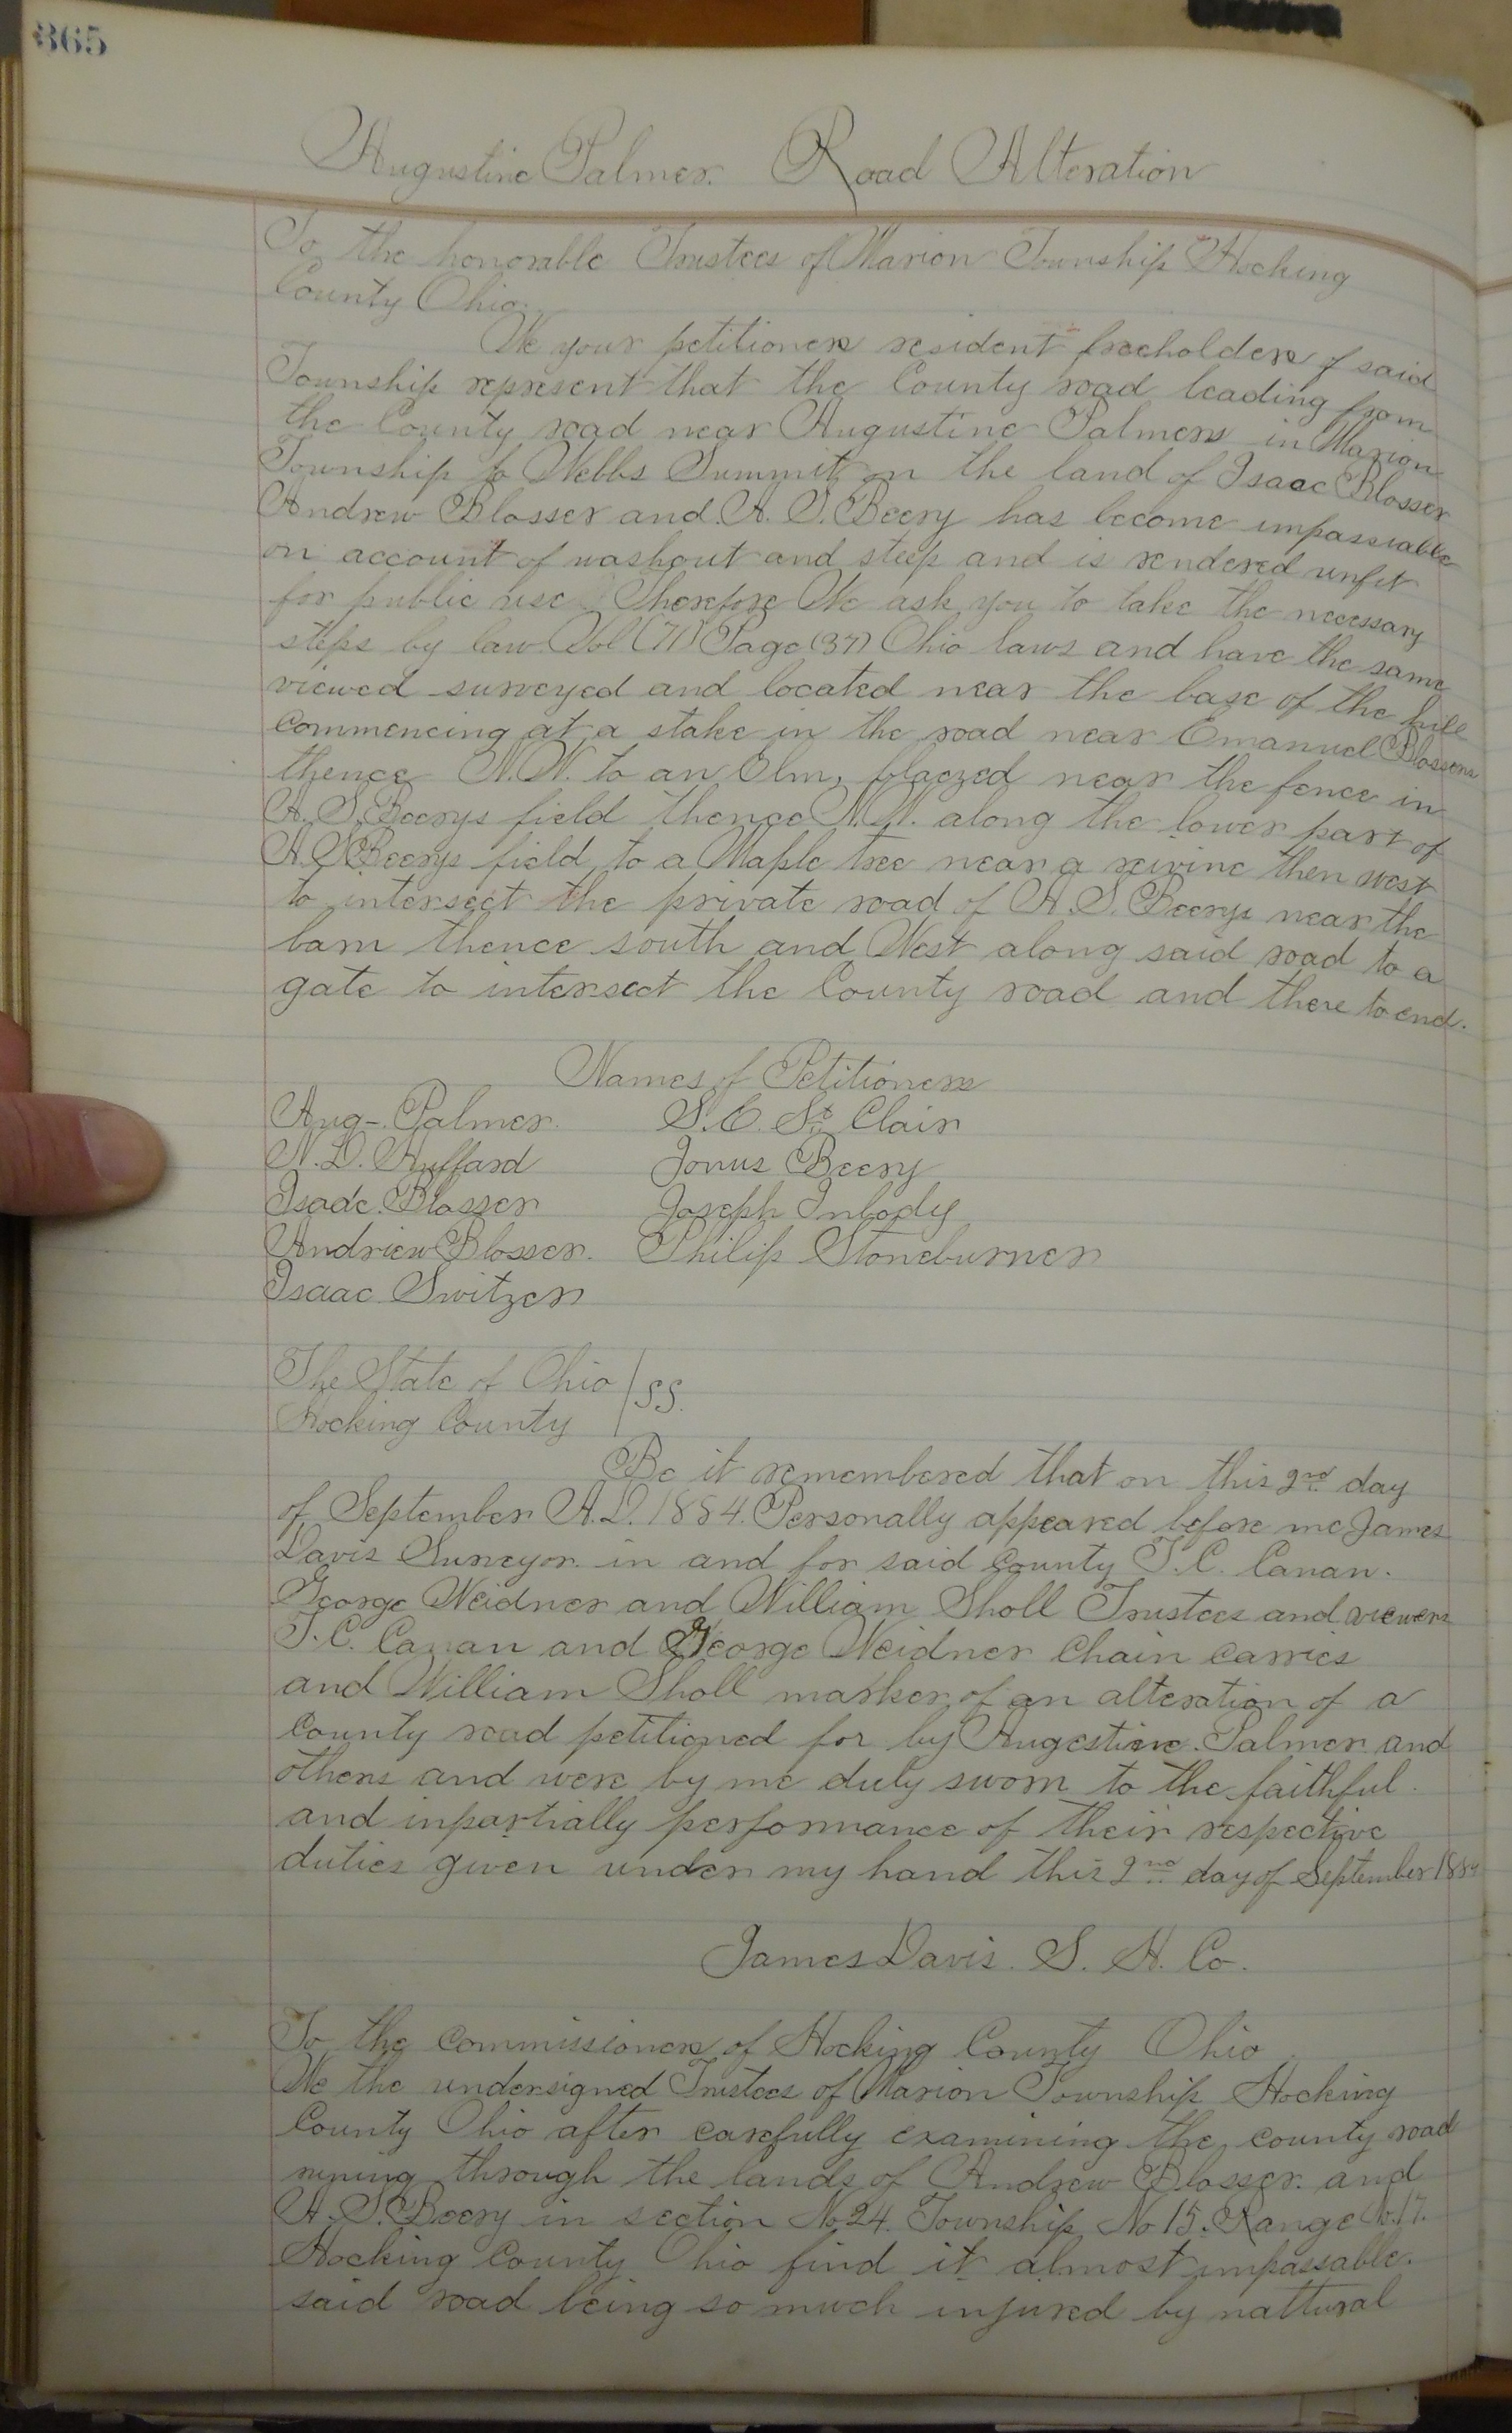 365
Augustine Palmer. Road Alteration
To the honorable Trustees of Marion Township Hocking
County Ohio.
We your petitioners resident freeholders of said
Township represent that the County road leading from
the County road near Augustine Palmers in Marion
Township to Webbs Summit on the land of Isaac Blosser
Andrew Blosser and A. S. Beery has become impassiable
on account of washout and steep and is rendered unfit
for public use Therefore We ask you to take the necessary
steps by law Vol (71) Page (37) Ohio laws and have the same
viewed surveyed and located near the base of the hill
commencing at a stake in the road near Emanuel Blossers
thence N.W. to an Elm, blaezed near the fence in
A. S. Beerys field thence N.W. along the lower part of
A. S Beerys field to a Maple tree near a reivine then west
to intersect the private road of A. S. Beerys near the
barn thence south and West along said road to a
gate to intersect the County road and there to end.
Names of Petitioners
Aug-. Palmer. S. C. St Clair
N. D. Huffard Jonus Beery
Isaac. Blosser Joseph Inbody
Andriew Blosser. Philip Stoneburner
Isaac Switzer
The State of Ohio
Hocking County SS.
Be it remembered that on this 2nd day
of September A.D. 1884. Personally appeared before me James
Davis Surveyor in and for said County T. C. Canan.
George Weidner and William Sholl Trustees and viewers
T. C. Canan and George Weidner Chain Carries
and William Sholl marker of an alteration of a
County road petitioned for by Augestine. Palmer and
others and were by me duly sworn to the faithful
and inpartially performance of their respective
duties given under my hand this 2nd day of September 1884
James Davis. S. H. Co.
To the Commissioners of Hocking County Ohio
We the undersigned Trustees of Marion Township Hocking
County Ohio after carefully examining the county road
runing through the lands of Andrew Blosser. and
A. S. Beery in section No 24. Township No 15. Range No. 17.
Hocking County Ohio find it almost impassable.
said road being so much injured by nattural